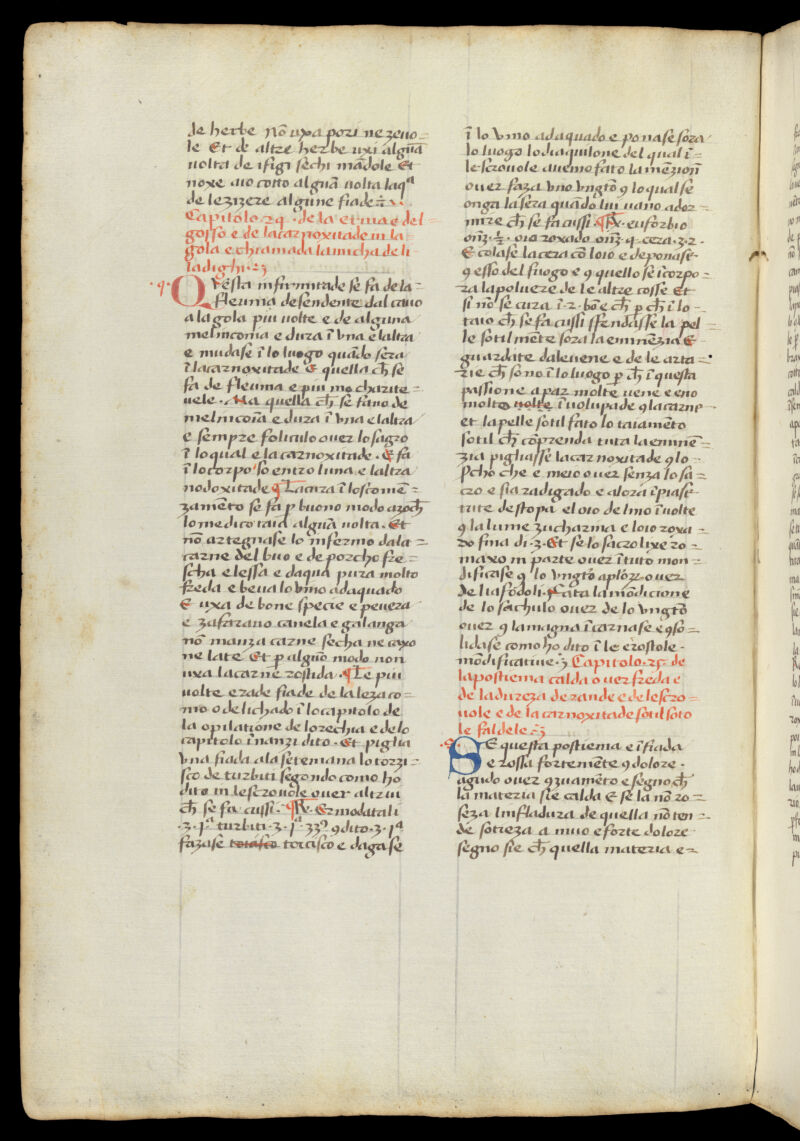 de herbe nō uxa pori ne zeuo=
le Et de altre herbe uxi algūa
uolta de i figi sechi mādole Et
noxe auo cotto algūa uolta laqª
de le zizere algune fiade
Capitolo 24 · de la etma e del
gosso e de la carnoxitade in la
gola e chiamada la nucha de li
ladighi
·q· Questa infirmitade se fa de la=
fleuma desendente dal cauo
a la gola piu uolte e de alguna
melinconia e dura ī una e laltra
e mudase ī lo luogo quādo sera
ī la carnoxitade E quella cħ se
fa de fleuma e piu mo charite=
uele · Ma quella cħ se fano de
melincoīa e dura ī una e laltra
e sempre foliculo ouer lo sagro
ī lo qual e la carnoxitade · E sa
ī lo corpo so entro luna e laltra
nodoxitade ¶ La cura ī lo scomē=
zamēto se fa p buono modo azocħ
lo medico taia algūa uolta · Et
nō artegnase lo infermo da la=
carne del buo e de porcho fre=
scha e lessa e daqua pura molto
freda e beua lo uino adaquado
E uxa de bone specie e peuere
e zafarano canela e galanga
nō manza carne secha ne caxo
ne late Et p algūo modo non
uxa la carne rostida · ¶ Le piu
uolte e rade fiade de la leza co=
mo o delichado ī lo capitolo de
la opilatione de lorechia e de lo
capitolo īnanzi dito · Et piglia
una fiada a la setemana lo torzi=
sco de turbiti segondo como ho
dito in le scrouole ouer altrui
cħ se fa cussi · ¶ ℞ · Ermodatali
·ʒ· jª turbiti ·ʒ· jª ʒʒº 9dito ·ʒ· jª
fazase torcisco e dagase
ī lo vino adaquado e ponase sora
lo luogo lo diaquilone del qual ī=
le scrouole auemo fato la mēzion
ouer faza uno ungtō 9 lo qual se
onga la sera quādo lui uano ador=
mire cħ se fa cussi · ¶ ℞ · euforbio
onʒ · ½ · oio roxado onʒ · q · cera · ʒ · 2 ·
E colase la cera cō loio e deponase
9 esso del fuogo e 9 quello se īcorpo=
ra la poluere de le altre cosse Et
si nō se cura ī · 2 · bōe cħ p cħ ī lo=
taio cħ se fa cussi sfendasse la pel=
le sotilmēte sora la eminēzia E
guardate da le uene e de le arta=
rie cħ sono ī lo luogo p cħ ī questa
passione apar molte uene e eno
molto ī uolupade 9 la carne
et la pelle sotil fato lo taiamēto
sotil cħ cōprenda tuta la eminē=
zia pigliasse la carnoxitade 9 lo=
p cħo che e meio ouer senza lo sa=
cro e sia radigado e alora ī piast=
tute de stopa e loio de lino ī uolte
9 la lume zucharina e loio roxa=
do fina di · 3 · Et se lo sacro lixe ro=
maxo in parte ouer ī tuto mon=
dificase 9 lo ungtō aplōrz ouer
de li afōdoli · fata la mōdicione
de lo sachulo ouer de lo ungtō
ouer 9 la magna ī carnase e 9so=
lidase como ho dito ī le crostole
mōdificatiue · Capitolo · 25 · de
la postiema calda ouer freda e
de la dureza de rande e de le scro=
uole e de la carnoxitade sotil soto
le faldele
Se questa postiema e ī fiada
e rossa fortemente 9 dolore ·
agudo ouer 9 zuamēto e segno cħ
la materia sie calda E se la nō ro=
seza linfladura de quella nō ten=
de sotieza a mio e forte dolore
segno sie cħ quella materia e=